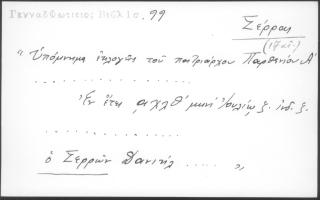 Γενναδ(ωτισις; Βιβλίο. 99
Σέρραι
(17 αἰ.)
"Ὑπόμνημα ἐκλογῆς τοῦ πατριάρχου Παρθενίου Α'
. . . . . . . . . . . . . . .
Ἐν ἔτει αχλθ' μηνὶ Ἰουλίῳ ξ. ἰνδ. ξ.
. . . . . . . . . . . . . . .
ὁ Σερρῶν Δανιήλ ..... "